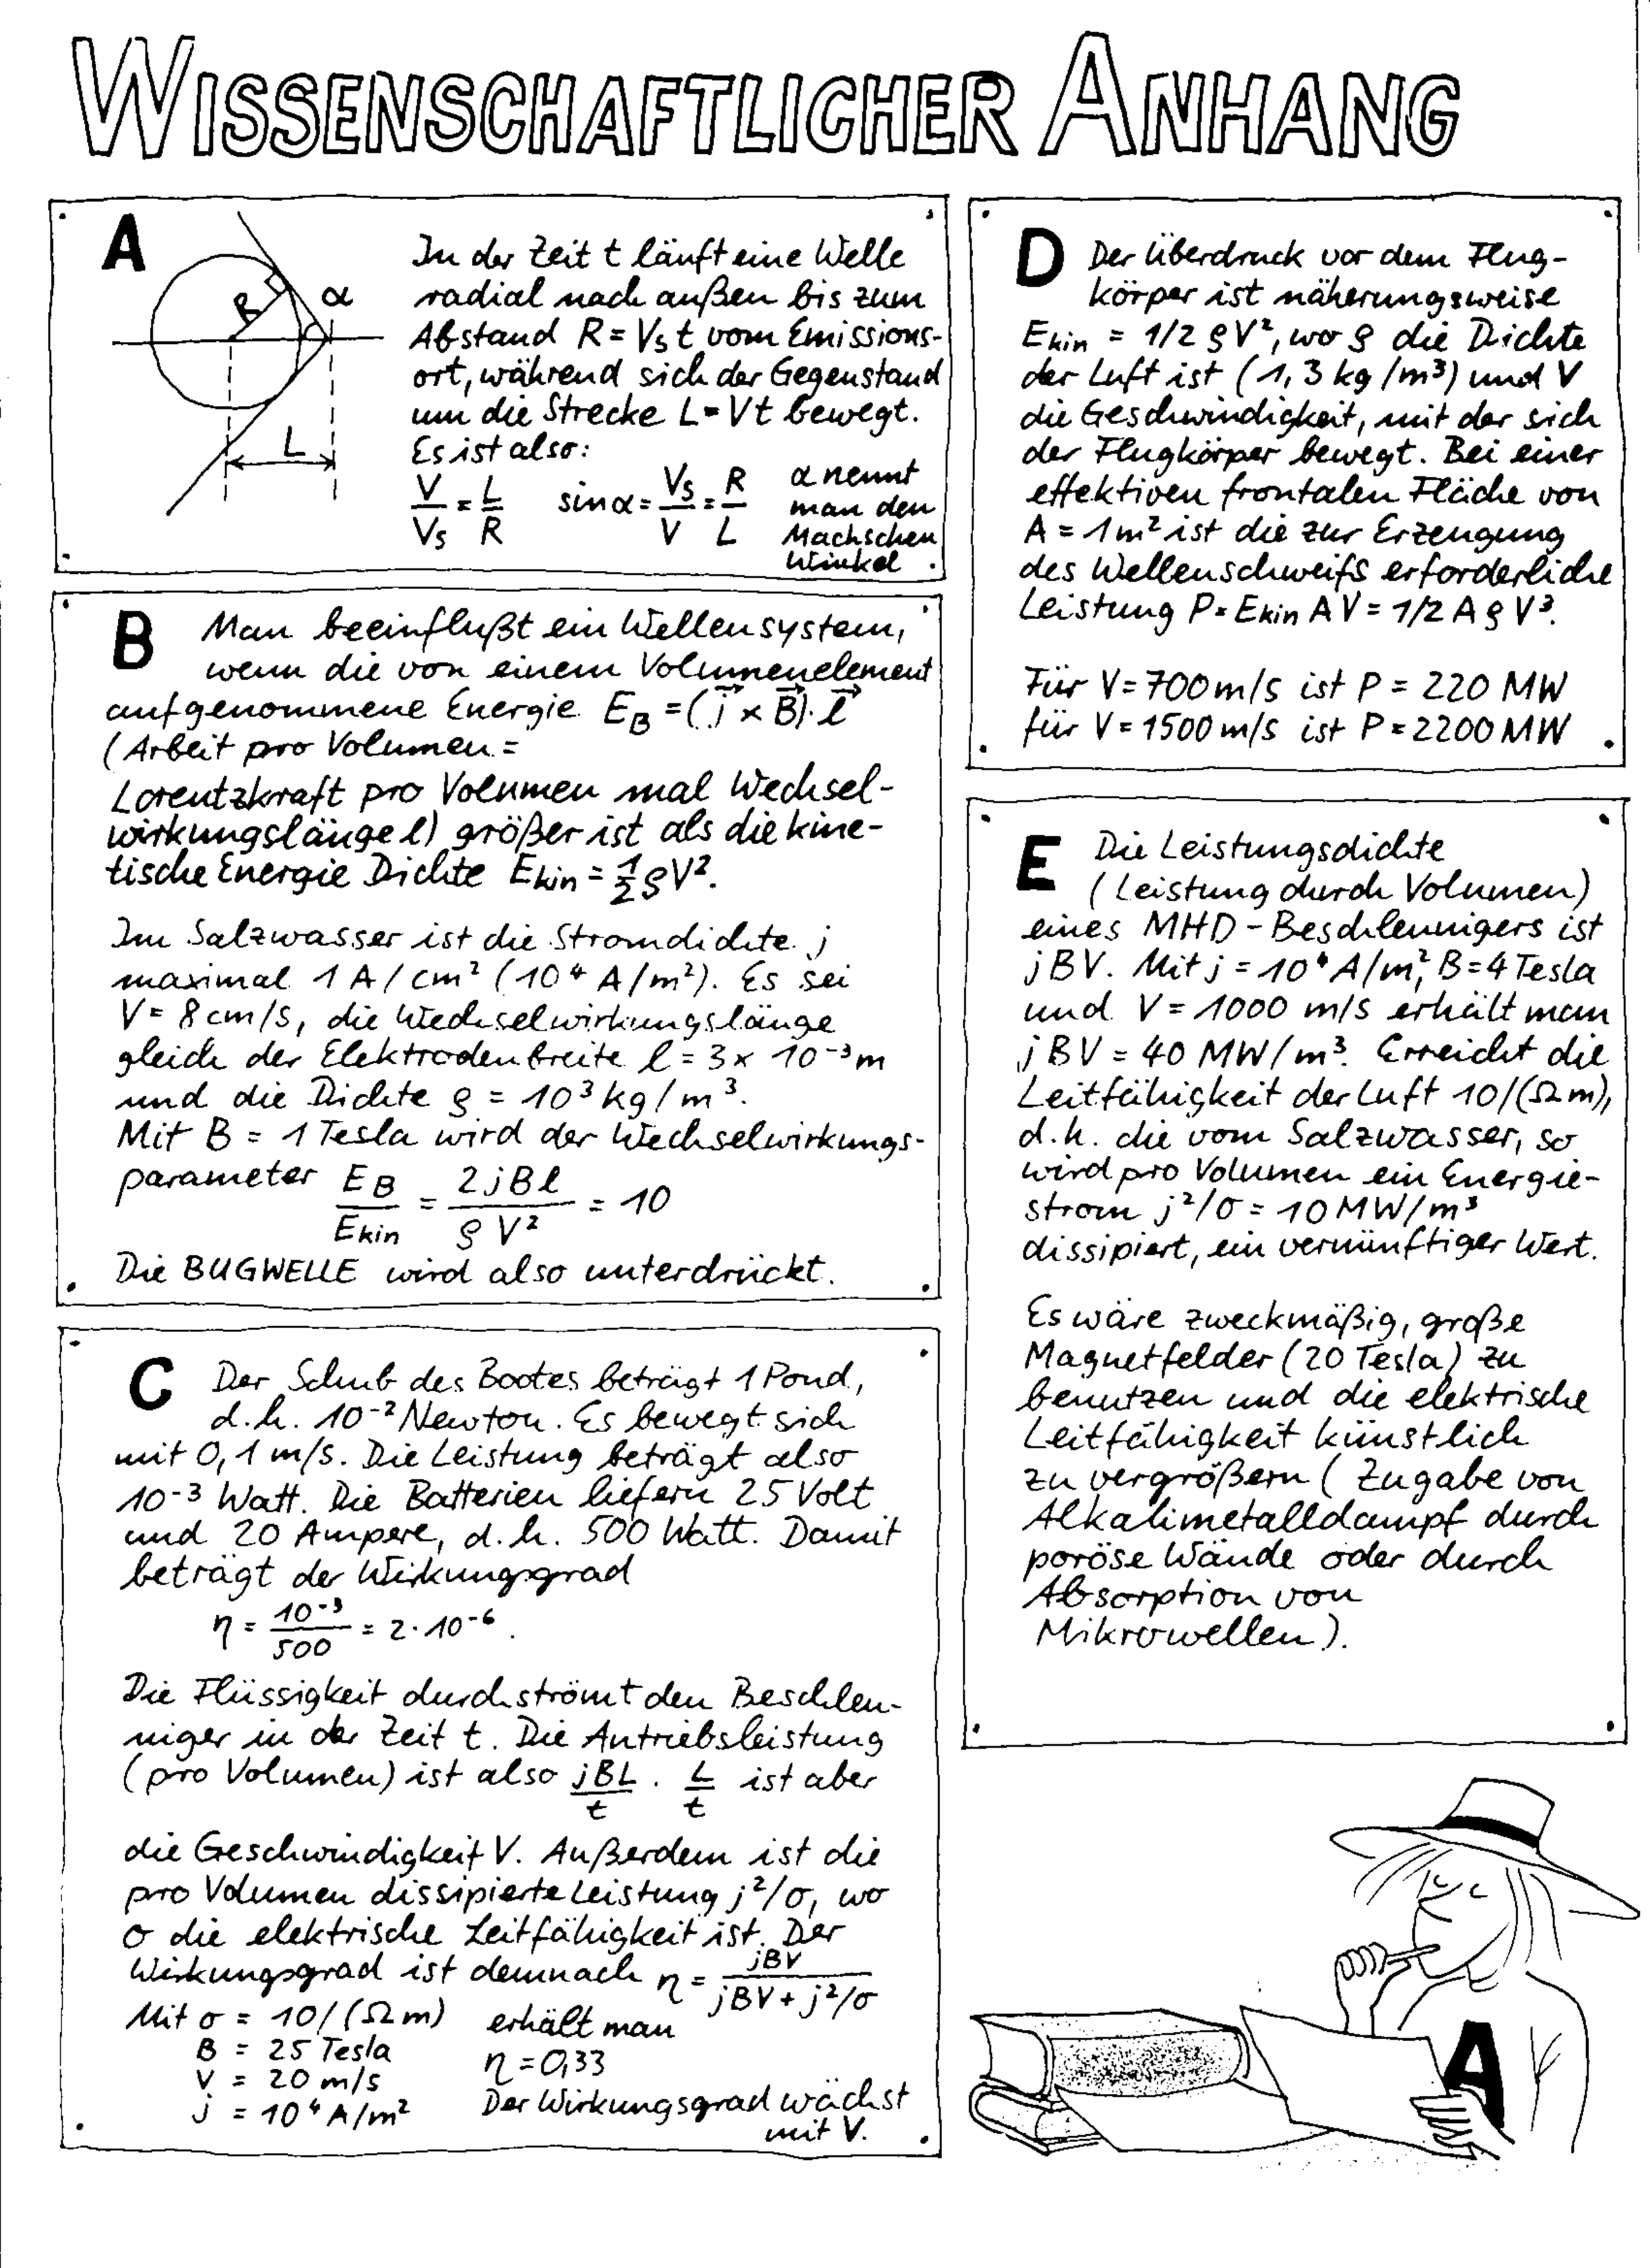 WISSENSCHAFTLICHER ANHANG
A
R
α
L
In der Zeit t läuft eine Welle
radial nach außen bis zum
Abstand R = Vs t vom Emissions-
ort, während sich der Gegenstand
um die Strecke L = Vt bewegt.
Es ist also:
V/Vs = L/R sin α = Vs/V = R/L
α nennt
man den
Machschen
Winkel.
B Man beeinflußt ein Wellensystem,
wenn die von einem Volumenelement
aufgenommene Energie E_B = (j⃗ × B⃗)·l⃗
(Arbeit pro Volumen =
Lorentzkraft pro Volumen mal Wechsel-
wirkungslänge l) größer ist als die kine-
tische Energie Dichte Ekin = 1/2 ϱV².
Im Salzwasser ist die Stromdichte j
maximal 1 A/cm² (10⁴ A/m²). Es sei
V = 8 cm/s, die Wechselwirkungslänge
gleich der Elektrodenbreite l = 3 x 10⁻³ m
und die Dichte ϱ = 10³ kg/m³.
Mit B = 1 Tesla wird der Wechselwirkungs-
parameter E_B/Ekin = 2jBl/ϱV² = 10
Die BUGWELLE wird also unterdrückt.
C Der Schub des Bootes beträgt 1 Pond,
d.h. 10⁻² Newton. Es bewegt sich
mit 0,1 m/s. Die Leistung beträgt also
10⁻³ Watt. Die Batterien liefern 25 Volt
und 20 Ampere, d.h. 500 Watt. Damit
beträgt der Wirkungsgrad
η = 10⁻³/500 = 2·10⁻⁶.
Die Flüssigkeit durchströmt den Beschleu-
niger in der Zeit t. Die Antriebsleistung
(pro Volumen) ist also jBL/t . L/t ist aber
die Geschwindigkeit V. Außerdem ist die
pro Volumen dissipierte Leistung j²/σ, wo
σ die elektrische Leitfähigkeit ist. Der
Wirkungsgrad ist demnach η = jBV/(jBV + j²/σ)
Mit σ = 10/(Ωm) erhält man
B = 25 Tesla η = 0,33
V = 20 m/s
j = 10⁴ A/m² Der Wirkungsgrad wächst
mit V.
D Der Überdruck vor dem Flug-
körper ist näherungsweise
Ekin = 1/2 ϱV², wo ϱ die Dichte
der Luft ist (1,3 kg/m³) und V
die Geschwindigkeit, mit der sich
der Flugkörper bewegt. Bei einer
effektiven frontalen Fläche von
A = 1m² ist die zur Erzeugung
des Wellenschweifs erforderliche
Leistung P = Ekin A V = 1/2 A ϱ V³.
Für V = 700 m/s ist P = 220 MW
für V = 1500 m/s ist P = 2200 MW
E Die Leistungsdichte
(Leistung durch Volumen)
eines MHD-Beschleunigers ist
jBV. Mit j = 10⁴ A/m², B = 4 Tesla
und V = 1000 m/s erhält man
jBV = 40 MW/m³. Erreicht die
Leitfähigkeit der Luft 10/(Ωm),
d.h. die vom Salzwasser, so
wird pro Volumen ein Energie-
strom j²/σ = 10 MW/m³
dissipiert, ein vernünftiger Wert.
Es wäre zweckmäßig, große
Magnetfelder (20 Tesla) zu
benutzen und die elektrische
Leitfähigkeit künstlich
zu vergrößern (Zugabe von
Alkalimetalldampf durch
poröse Wände oder durch
Absorption von
Mikrowellen).
A